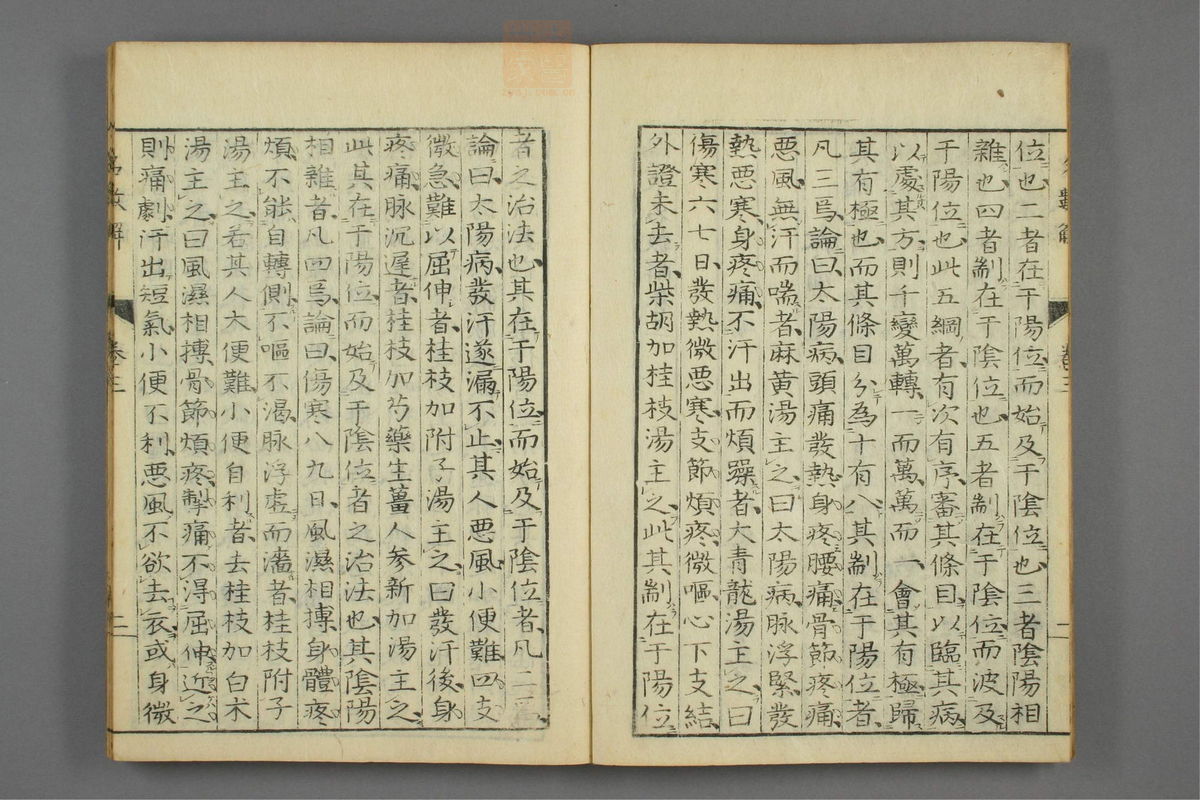 位也二者在于陽位而始及于陰位也三者陰陽相
雜也四者制在于陰位也五者制在于陰位而波及
于陽位也此五綱者有次有序審其條目以臨其病
以處其方則千變萬轉一而萬萬而一會其有極歸
其有極也而其條目分為十有八其制在于陽位者
凡三焉論曰太陽病頭痛發熱身疼腰痛骨節疼痛
惡風無汗而喘者麻黃湯主之曰太陽病脉浮緊發
熱惡寒身疼痛不汗出而煩躁者大青龍湯主之曰
傷寒六七日發熱微惡寒支節煩疼微嘔心下支結
外證未去者柴胡加桂枝湯主之此其制在于陽位
者之治法也其在于陽位而始及于陰位者凡二焉
論曰太陽病發汗遂漏不止其人惡風小便難四支
微急難以屈伸者桂枝加附子湯主之曰發汗後身
疼痛脉沉遲者桂枝加芍藥生薑人參新加湯主之
此其在于陽位而始及于陰位者之治法也其陰陽
相雜者凡四焉論曰傷寒八九日風濕相搏身體疼
煩不能自轉側不嘔不渴脉浮虛而濇者桂枝附子
湯主之若其人大便難小便自利者去桂枝加白朮
湯主之曰風濕相搏骨節煩疼掣痛不得屈伸近之
則痛劇汗出短氣小便不利惡風不欲去衣或身微
卷三
二